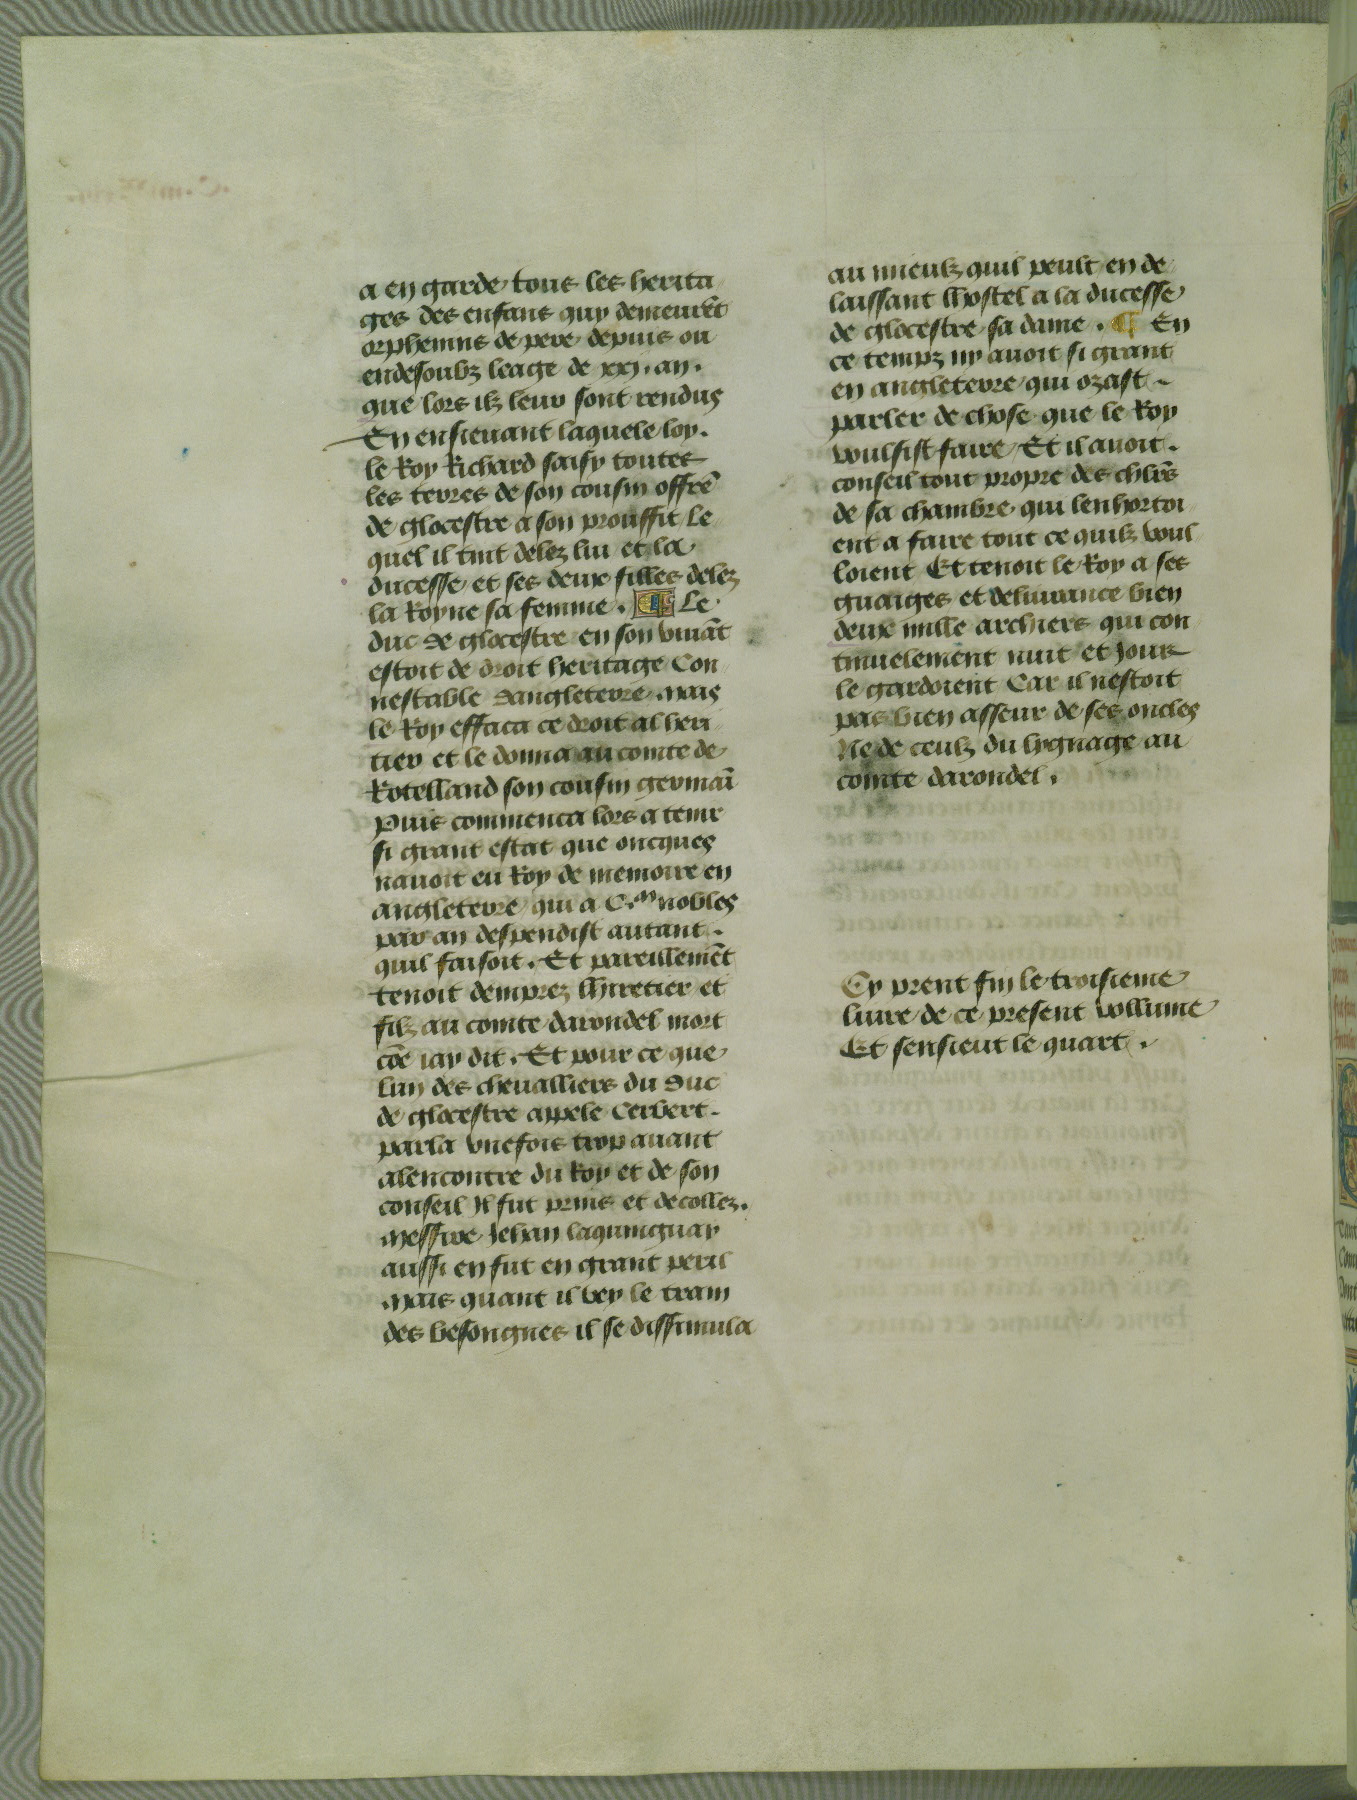 a en garde tous les herita
ges des enfans quy demeurēt
orphenins de pere depuis ou
endesoubz leage de xxj. an.
que lors ilz leur sont rendus
En ensieuant laquele loy.
le Roy Richard saisy toutes
les terres de son cousin offrē
de glocestre a son prouffit le
quel il tint delez lui et la
ducesse et ses deux filles delez
la Royne sa femme. ¶ Le
duc de glocestre en son viuāt
estoit de droit heritage Con
nestable dangleterre. mais
le Roy effaca ce droit al heri
tier et le donna au comte de
Rotelland son cousin germaī
Puis commenca lors a tenir
si grant estat que oncques
nauoit eu Roy de memoire en
angleterre qui a C.m nobles
par an despendist autant.
quil faisoit. Et pareillemēt
tenoit demprez lhiretier et
filz au comte darondel mort
cōe iay dit. Et pour ce que
lun des chevalliers du duc
de glocestre appele Cerbert.
parla vnefois trop auant
alencontre du Roy et de son
conseil Jl fut prins et decollez.
Messire Jehan laquinguay
aussi en fut en grant peril
Mais quant il vey le train
des besongnes il se dissimula
au mieulz quil peult en de
laissant lhostel a la ducesse
de glocestre sa dame. ¶ En
ce tempz ny auoit si grant
en angleterre qui ozast.
parler de chose que le Roy
voulsist faire Et il auoit.
conseil tout propre des chlrs̄
de sa chambre qui lenhortoi
ent a faire tout ce quilz voul
loient Et tenoit le Roy a ses
guaiges et deliurance bien
deux mille archiers qui con
tinuelement nuit et Jour
le gardoient Car il nestoit
pas bien asseur de ses oncles
Ne de ceulz du lygnage au
comte darondel.
Cy prent fin le troisieme
liure de ce present vollume
Et sensieut le quart.